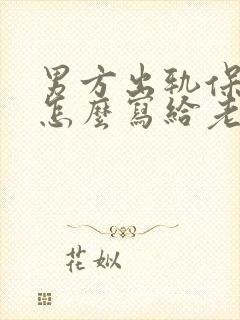 男方出轨保
怎麼寫給老
花姒